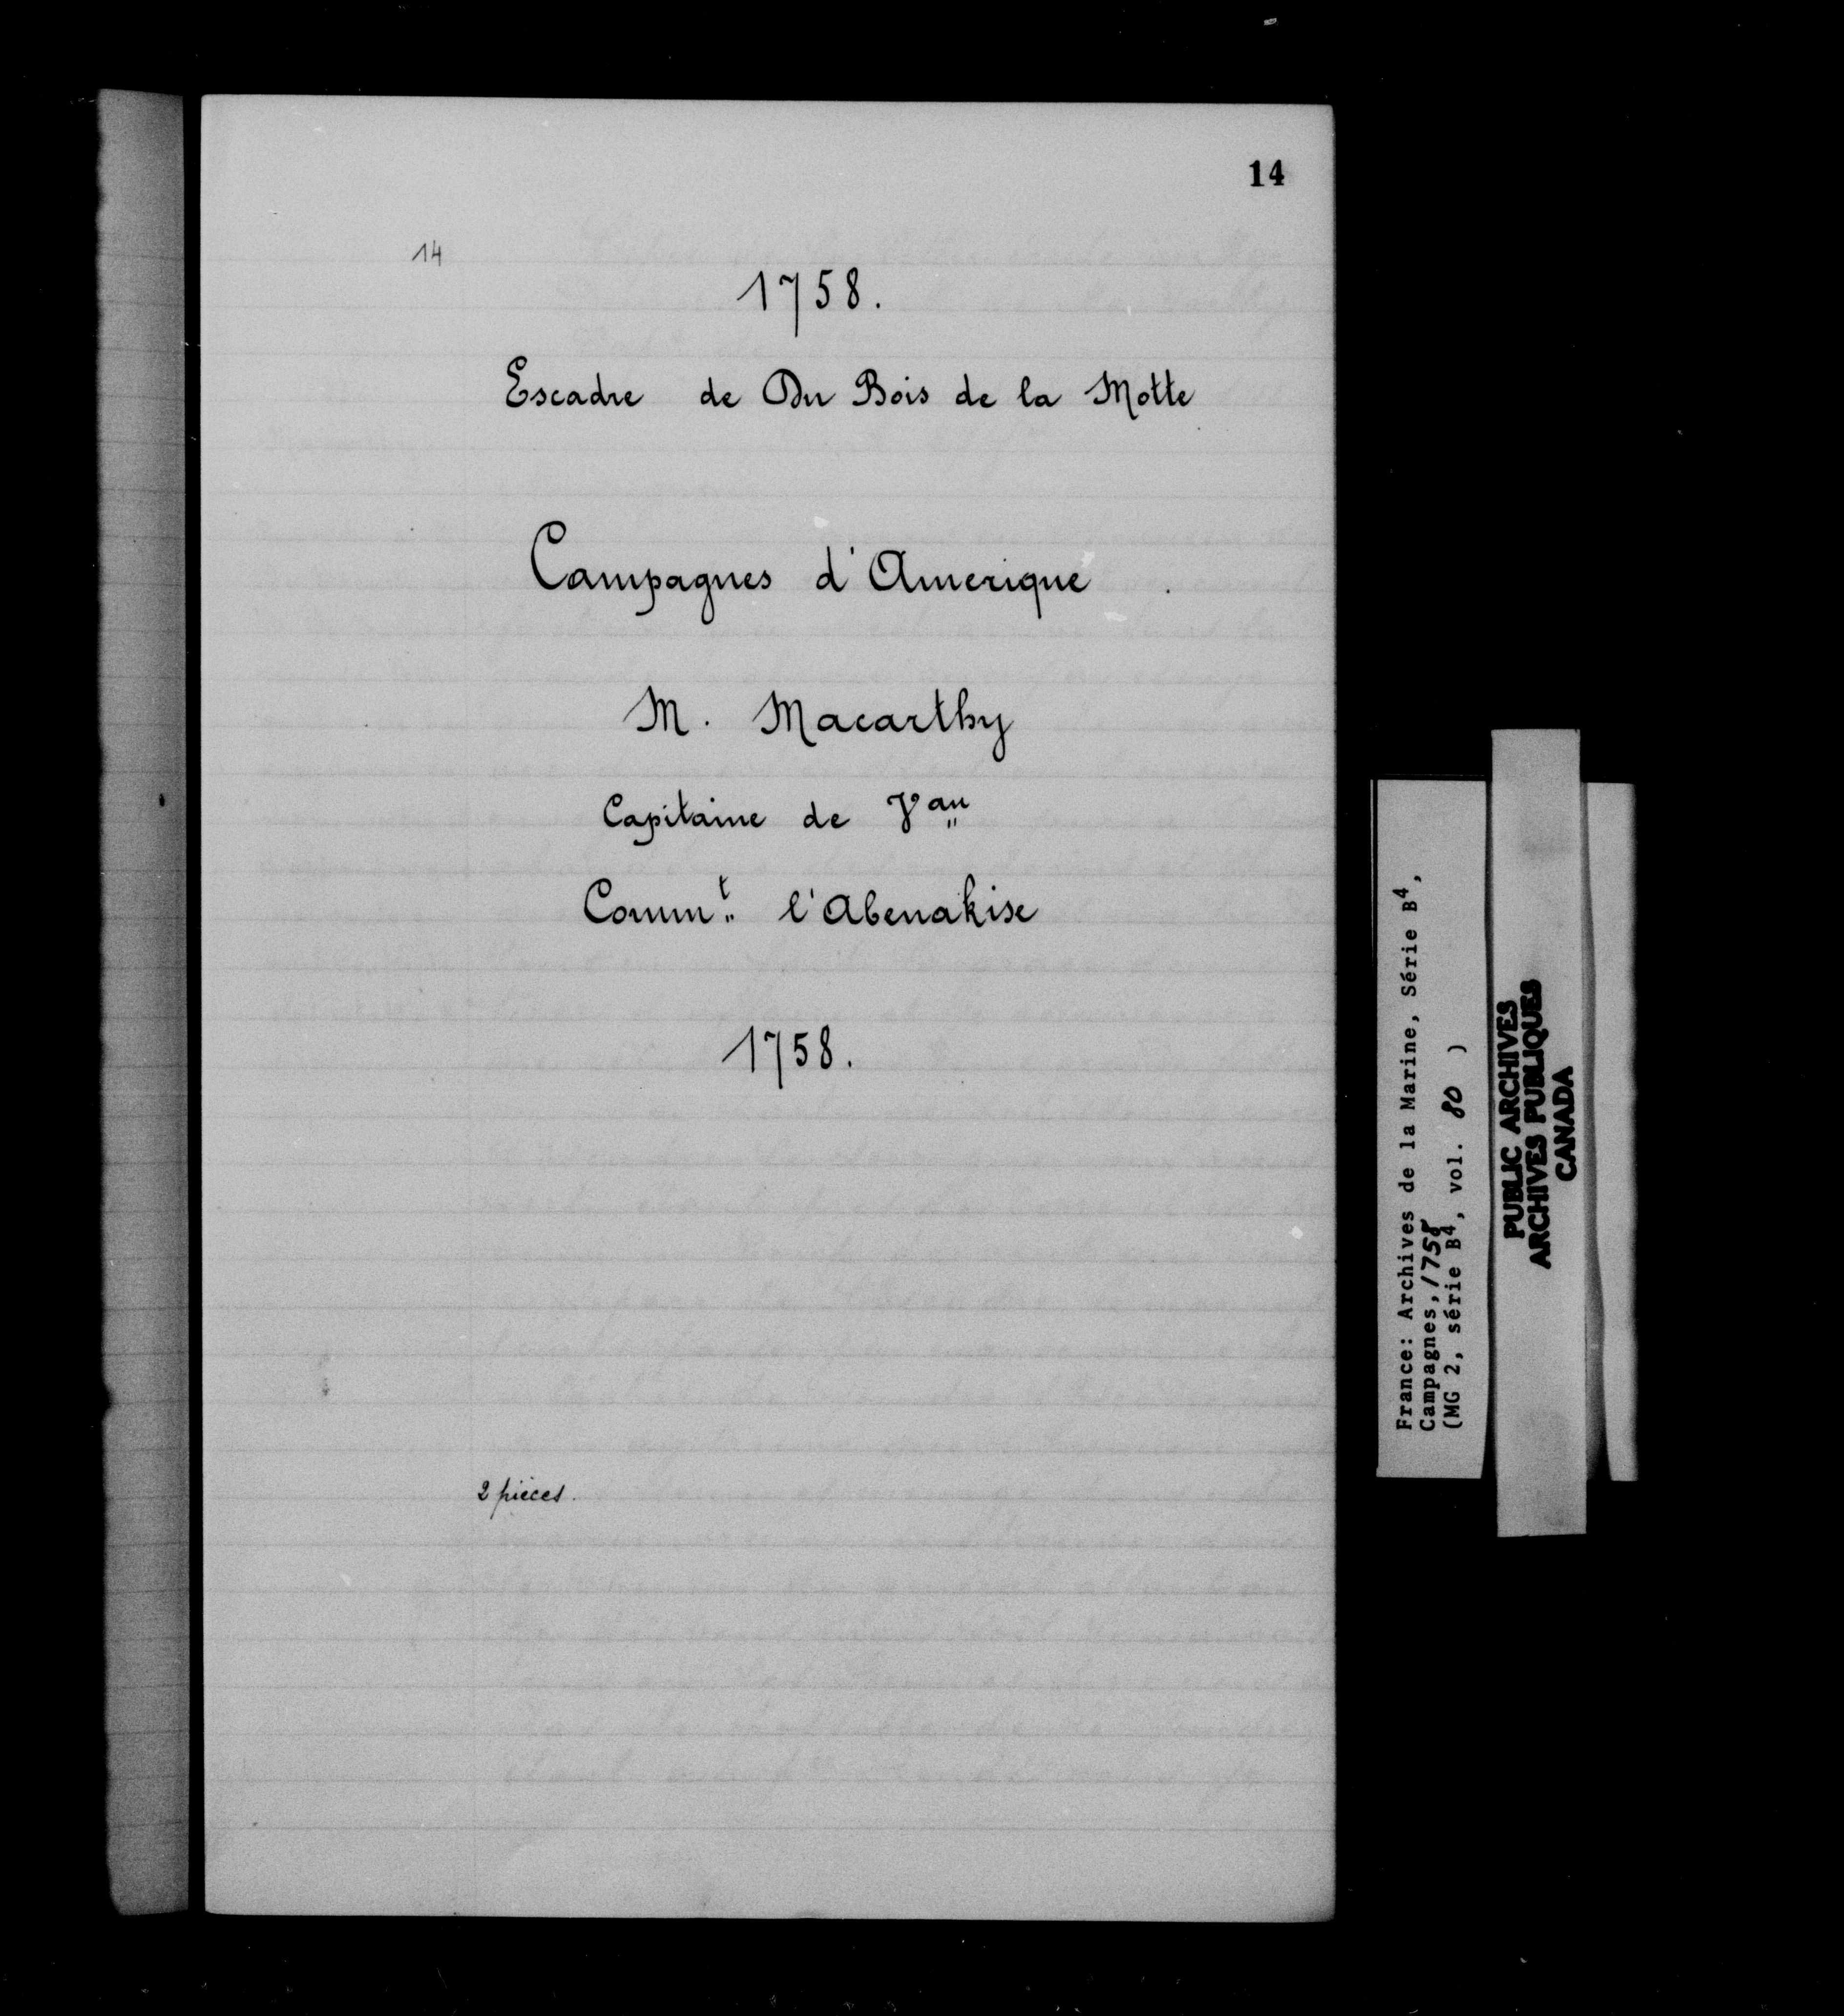 14
14
1758.
Escadre de Du Bois de la Motte
Campagnes d'Amerique.
M. Macarthy
Capitaine de Vau
Commt l'Abenakise
1758.
2 pièces.
France: Archives de la Marine, Série B4,
Campagnes, 1758
(MG 2, série B4, vol. 80 )
PUBLIC ARCHIVES
ARCHIVES PUBLIQUES
CANADA